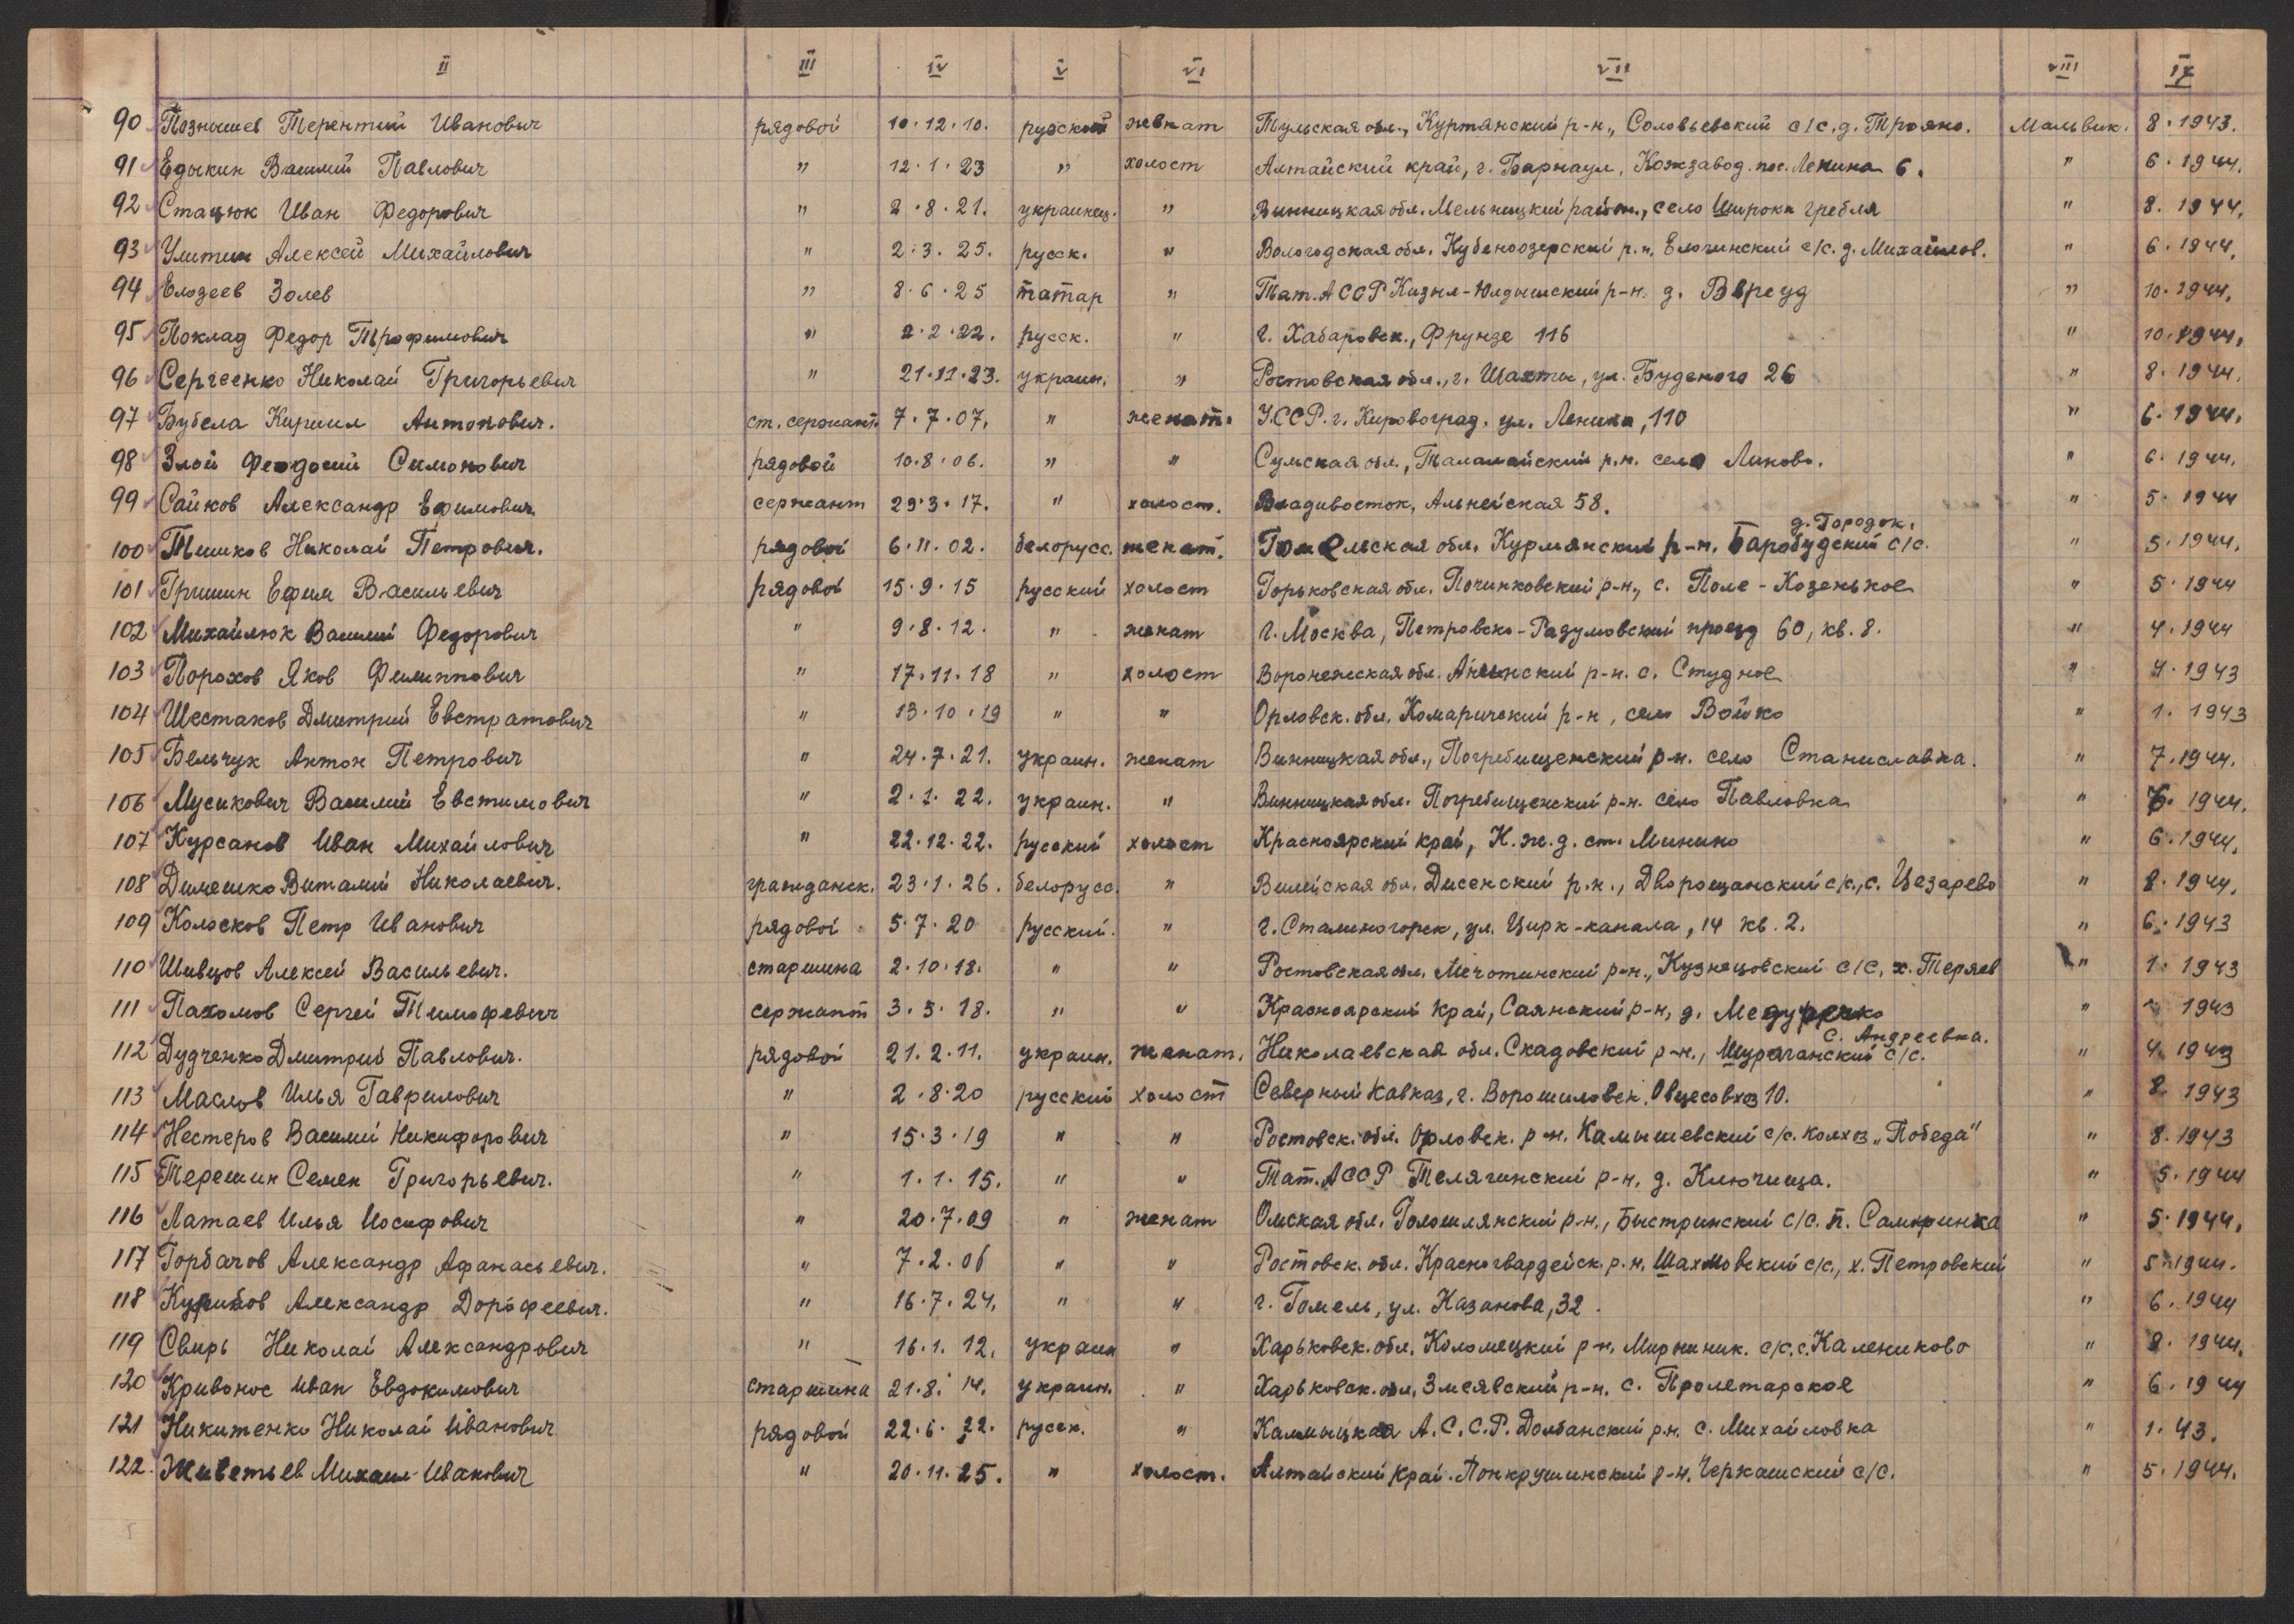 II III IV V VI VII VIII IX
90 Познышев Терентий Иванович рядовой 10.12.10. русский женат Тульская обл., Куртанский р-н., Соловьевский с/с. д. Трояно. Мальвик. 8.1943.
91 Едыкин Василий Павлович " 12.1.23 " холост Алтайский край, г. Барнаул, Кожзавод. пос. Ленина 6. " 6.1944.
92 Стацюк Иван Федорович " 2.8.21. украинец. " Винницкая обл. Мельницкий район., село Широка гребля " 8.1944.
93 Улитин Алексей Михайлович " 2.3.25. русск. " Вологодская обл. Кубеноозерский р.н. Елогинский с/с. д. Михайлов. " 6.1944.
94 Елозеев Золев " 8.6.25 татар " Тат. АССР Кизыл-Юлдышский р-н. д. " 10.1944.
95 Поклад Федор Трофимович " 2.2.22. русск. " г. Хабаровск., Фрунзе 116 " 10.1944.
96 Сергеенко Николай Григорьевич " 21.11.23. украин. " Ростовская обл., г. Шахты, ул. Буденого 26 " 8.1944.
97 Бубела Кирилл Антонович. ст. сержант. 7.7.07. " женат. УССР. г. Кировоград. ул. Ленина, 110 " 6.1944.
98 Злой Феодосий Симонович рядовой 10.8.06. " " Сульская обл., Талалайский р.н. село Липово. " 6.1944.
99 Сайков Александр Ефимович сержант 29.3.17. " холост. Владивосток, Альпейская 58. " 5.1944
д. Городок.
100 Тишков Николай Петрович. рядовой 6.11.02. белорусс. женат. Гомельская обл. Курмянский р-н. Баробудский с/с. " 5.1944.
101 Гришин Ефим Васильевич рядовой 15.9.15 русский холост Горьковская обл. Починковский р-н., с. Поле-Козенькое " 5.1944
102 Михайлюк Василий Федорович " 9.8.12. " женат г. Москва, Петровско-Разумовский проезд 60, кв. 8. " 4.1944
103 Порохов Яков Филиппович " 17.11.18 " холост Воронежская обл. Аннинский р-н. с. Студное " 4.1943
104 Шестаков Дмитрий Евстратович " 13.10.19 " " Орловск. обл. Комаричский р-н, село Войко " 1.1943
105 Бельчук Антон Петрович " 24.7.21. украин. женат Винницкая обл., Погребищенский р-н. село Станиславка. " 7.1944.
106 Мусикович Василий Евстимович " 2.1.22. украин. " Винницкая обл. Погребищенский р-н. село Павловка " 6.1944.
107 Курсанов Иван Михайлович " 22.12.22. русский холост Красноярский край, К.ж.д. ст. Минино " 6.1944.
108 Димешко Виталий Николаевич. гражданск. 23.1.26. белорусс. " Вилейская обл. Дисенский р.н., Дворощанский с/с., с. Цезарево " 8.1944.
109 Колосков Петр Иванович рядовой 5.7.20 русский. " г. Сталиногорск, ул. Цирк-канала, 14 кв. 2. " 6.1943
110 Шивцов Алексей Васильевич. старшина 2.10.18. " " Ростовская обл. Мечотинский р-н., Кузнецовский с/с, х. Теряев " 1.1943
111 Пахомов Сергей Тимофевич сержант 3.5.18. " " Красноярский край, Саянский р-н, д. " 1943
с. Андреевка.
112 Дудченко Дмитрий Павлович. рядовой 21.2.11. украин. женат. Николаевская обл. Скадовский р-н., Шураганский с/с. " 4.1943
113 Маслов Илья Гаврилович " 2.8.20 русский холост Северный Кавказ, г. Ворошиловск, Овцесовхоз 10. " 8.1943
114 Нестеров Василий Никифорович " 15.3.19 " " Ростовск. обл. Орловск. р-н. Камышевский с/с. колхоз „Победа" " 8.1943
115 Терешин Семен Григорьевич. " 1.1.15. " " Тат. АССР Телягинский р-н, д. Ключища. " 5.1944
116 Латаев Илья Иосифович " 20.7.09 " женат Омская обл. Голошлянский р-н., Быстринский с/с. п. Самиринка " 5.1944.
117 Горбачов Александр Афанасьевич. " 7.2.06 " " Ростовск. обл. Красногвардейск. р.н. Шахмовский с/с., х. Петровский " 5.1944.
118 Александр Дорофеевич. " 16.7.24. " " г. Гомель, ул. Казанова, 32. " 6.1944
119 Свирь Николай Александрович " 16.1.12. украин " Харьковск. обл. Коломецкий р-н, Мирнинк. с/с. с. Калениково " 8.1944.
120 Кривонос Иван Евдокимович старшина 21.8.14. украин. " Харьковск. обл. Змеявский р-н. с. Пролетарское " 6.1944
121 Никитенко Николай Иванович рядовой 22.6.22. русск. " Калмыцкая А.С.С.Р. Долбанский р.н. с. Михайловка " 1.43.
122. Живетьев Михаил Иванович " 20.11.25. " холост. Алтайский край. Понкрушинский р-н. Черкашский с/с. " 5.1944.